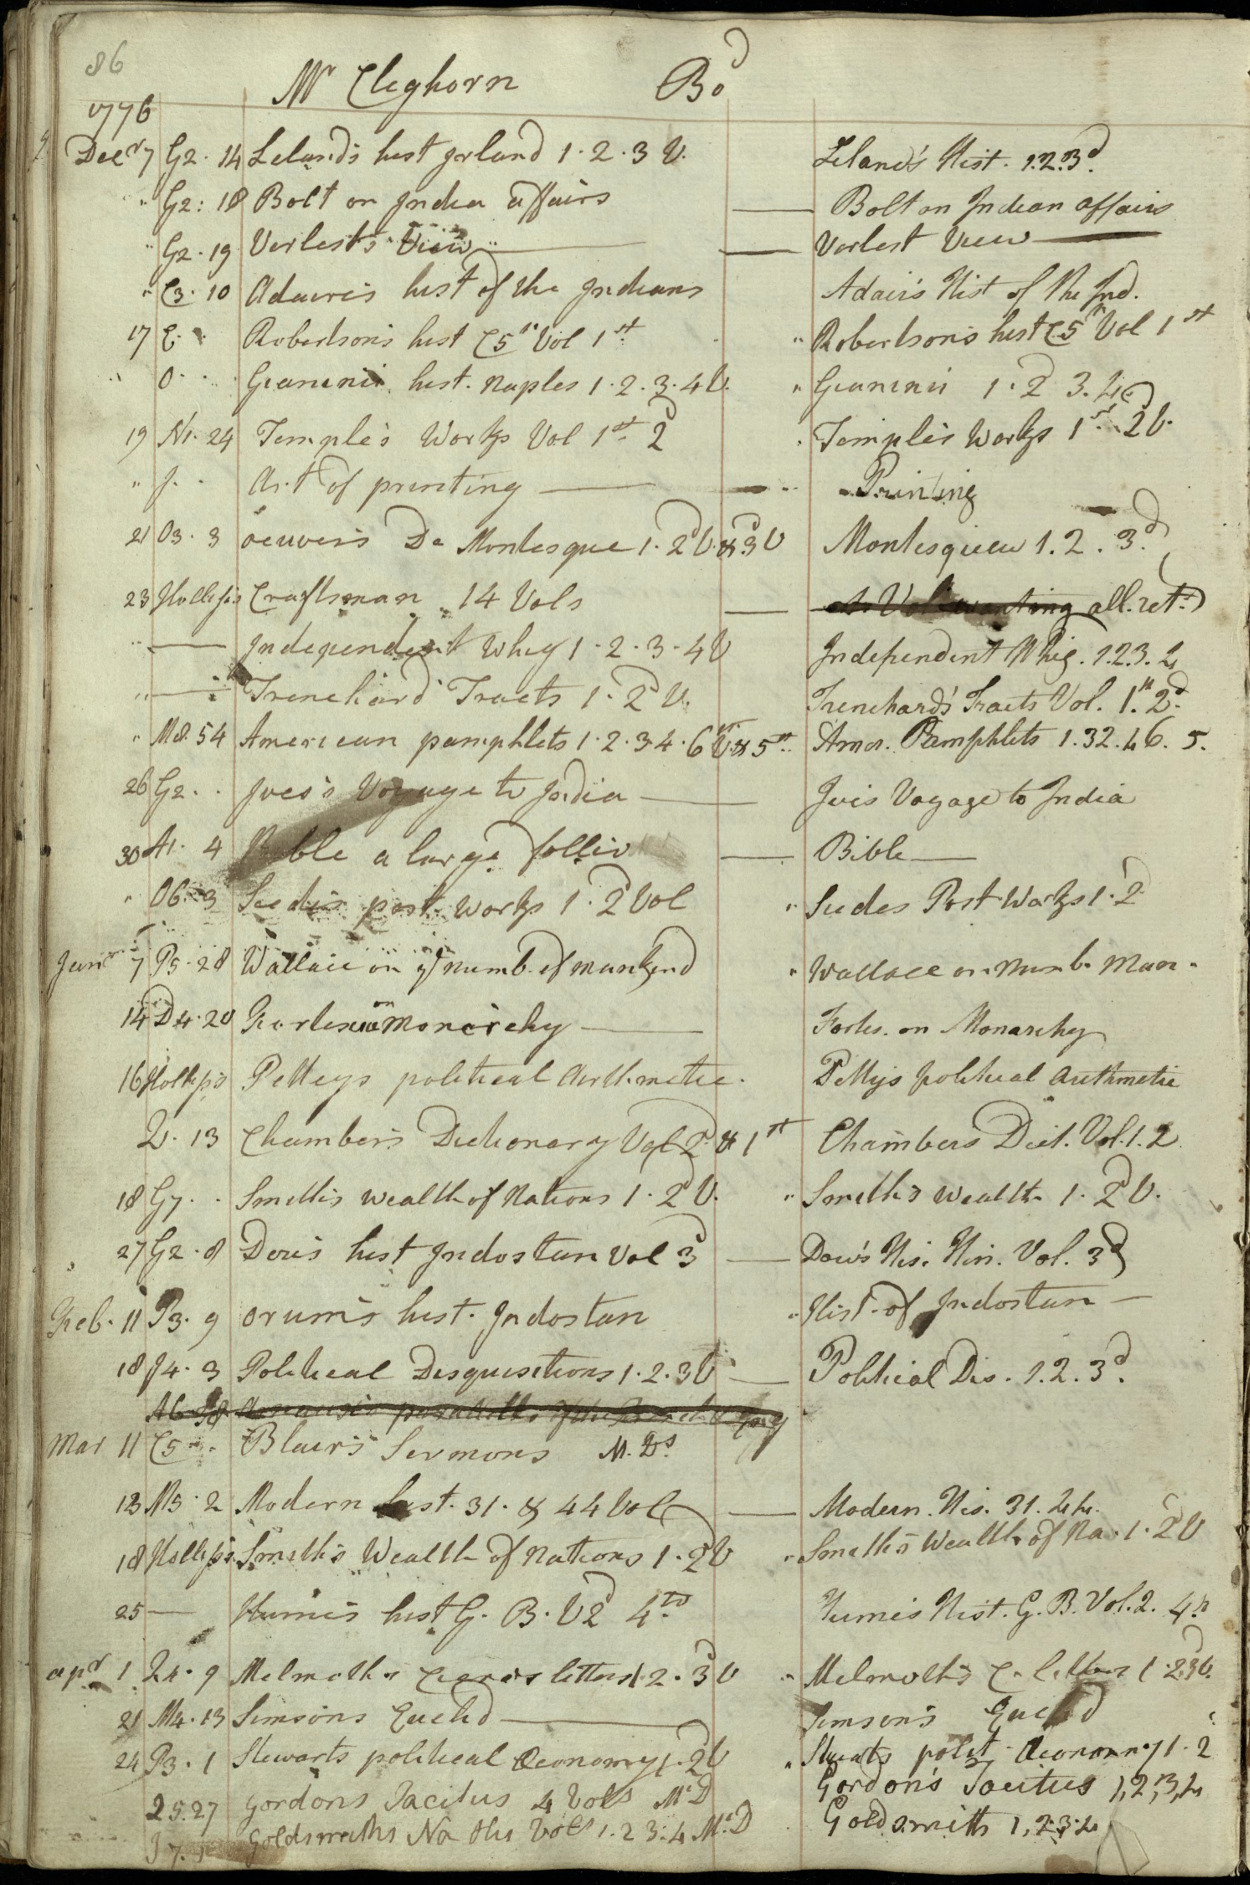 86
Mr Cleghorn Bod
1776
Decr 7 G2. 14 Leland's hist Jrland 1. 2. 3 V. Leland's Hist. 1.2.3d
" G2: 18 Bolt on Jndia affairs — Bolt on Jndian affairs
" G2. 19 Verlests View — Verlest View —
" C3. 10 Adaires hist of the Jndians Adair's Hist of the Jnd.
17 C. Robertson's hist C5th Vol 1st " Robertson's hist C5th Vol 1st
" O. Giannini hist. Naples 1. 2. 3. 4 V. " Giannini 1. 2 3. 4
19 N1. 24 Temple's Works Vol 1st 2d Temple's Works 1st 2d V.
" J. Art of printing — Prining
21 O3. 3 oeuvers De Montesque 1. 2d V. & 3d V Montesquieu 1. 2. 3d
23 Hollip's Craftsman 14 Vols — all. retd
— Jndependent Whig 1. 2. 3. 4 V Jndependent Whig. 1.2.3.4
" — Trenchard Tracts 1. 2d V. Trenchard's Tracts Vol. 1st 2d
" M8. 54 American pamphlets 1. 2. 3 4. 6 V. & 5th Amer. Pamphlets 1. 32. 4 6. 5.
26 G2. . Jves's Voyage to Jndia — Jves Voyage to Jndia
30 A1. 4 Bible a large follio — Bible —
" O6. 3 Seedes post. Works 1. 2d Vol " Seedes Post Works 1. 2
Janr 7 P5. 28 Wallace on ye numb. of mankind " Wallace on Numb. Man.
14 D4. 20 on Monarchy — on Monarchy
16 Hollip's Petteys political Arithmetic. Petty's political Arithmetic
2. 13 Chambers Dictionary Vol 2d & 1st Chambers Dict. Vol. 1. 2
18 G7. . Smith's Wealth of Nations 1. 2d V. " Smith's Wealth 1. 2d V.
27 G2. 8 Dow's hist Jndostan Vol 3d — Dow's His. Hin. Vol. 3d
Feb. 11 P3. 9 Orum's hist. Jndostan " Hist. of Jndostan —
18 J4. 3 Political Disquisitions 1. 2. 3 V — Political Dis. 1. 2. 3d
Mar 11 C5 Blair's Sermons M. Ds
13 M5. 2 Modern hist. 31. & 44 Vol — Modern. His. 31. 44.
18 Hollip's Smith's Wealth of Nations 1. 2d V " Smith's Wealth of Na. 1. 2d V
25 — Humes hist G. B. V 2d 4to Humes Hist. G. B. Vol. 2. 4to
apr 1 24. 9 Melmoths Ciceros letters 1. 2. 3d V " Melmoth's C. letters 1. 2 3d V.
21 M4. 13 Simsons Euclid — Simson's Euclid
24 P3. 1 Stewarts political Oeconomy 1. 2d V " Stuarts polit. Oeconomy 1. 2
25. 27 Gordons Tacitus 4 Vols McD Gordon's Tacitus 1, 2, 3, 4
J 7. Goldsmiths Na His Vols 1. 2 3. 4 McD Goldsmith 1, 2. 3. 4